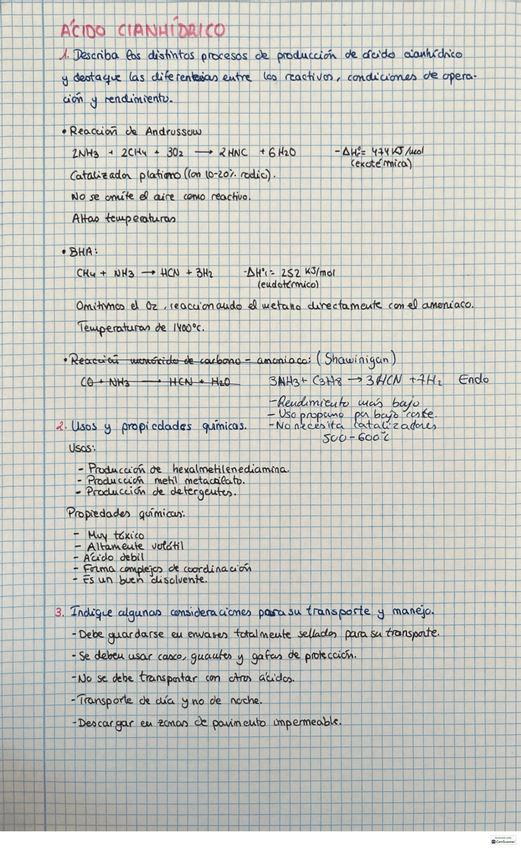 ÁCIDO CIANHÍDRICO
1. Describa los distintos procesos de producción de ácido cianhídrico
y destaque las diferencias entre los reactivos, condiciones de opera-
ción y rendimiento.
• Reacción de Andrussow
2NH3 + 2CH4 + 3O2 → 2HNC + 6H2O -ΔHº= 474 KJ/mol
(exotérmica)
Catalizador platino (Con 10-20% rodio).
No se omite el aire como reactivo.
Altas temperaturas
• BHA:
CH4 + NH3 → HCN + 3H2 -ΔHº1= 252 KJ/mol
(endotérmico)
Omitimos el O2, reaccionando el metano directamente con el amoníaco.
Temperaturas de 1400ºC.
• Reacción monóxido de carbono - amoniaco: (Shawinigan)
CO + NH3 → HCN + H2O 3NH3 + C3H8 → 3HCN + 7H2 Endo
- Rendimiento más bajo
- Uso propano por bajo coste.
2. Usos y propiedades químicas. - No necesita catalizadores
Usos: 500-600ºC
- Producción de hexalmetilenediamina
- Producción metil metacrilato.
- Producción de detergentes.
Propiedades químicas:
- Muy tóxico
- Altamente volátil
- Ácido debil
- Forma complejos de coordinación
- Es un buen disolvente.
3. Indique algunas consideraciones para su transporte y manejo.
- Debe guardarse en envases totalmente sellados para su transporte.
- Se deben usar casco, guantes y gafas de protección.
- No se debe transportar con otros ácidos.
- Transporte de día y no de noche.
- Descargar en zonas de pavimento impermeable.
CamScanner